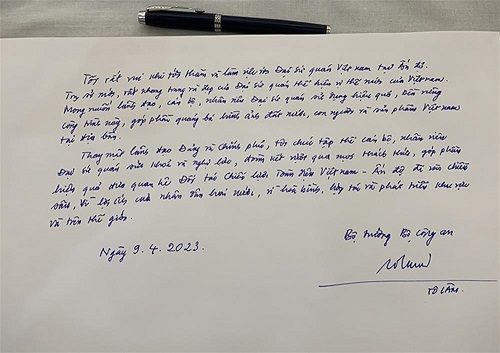 Tôi rất vui khi tới thăm và làm việc với Đại sứ quán Việt Nam tại Ấn Độ.
Trụ sở mới, rất khang trang và đẹp của Đại sứ quán thể hiện vị thế mới của Việt Nam.
Mong muốn lãnh đạo, cán bộ, nhân viên Đại sứ quán sử dụng hiệu quả, bền vững
công trình này, góp phần quảng bá hình ảnh đất nước, con người và sản phẩm Việt Nam
tại địa bàn.
Thay mặt lãnh đạo Đảng và Chính phủ, tôi chúc tập thể cán bộ, nhân viên
Đại sứ quán sức khoẻ và nghị lực, đoàn kết vượt qua mọi thách thức, góp phần
hiệu quả đưa quan hệ Đối tác Chiến lược Toàn diện Việt Nam - Ấn Độ đi vào chiều
sâu, vì lợi ích của nhân dân hai nước, vì hoà bình, hợp tác và phát triển khu vực
và trên thế giới.
Ngày 9.4.2023.
Bộ trưởng Bộ Công an
TÔ LÂM.